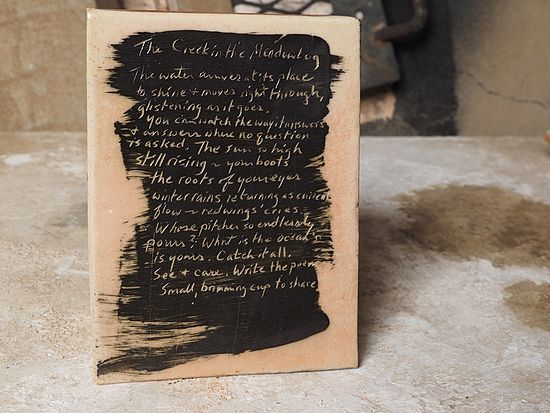 The Creek in the Meadow Log
The water arrives at its place
to shine + moves right through,
glistening as it goes.
You can watch the way it answers
+ answers where no question
is asked. The sun so high
still rising ~ your boots
the roots of your eyes
winter rains returning as
flow ~ redwings' cries.
Whose pitcher so endlessly
pours? What is the ocean's
is yours. Catch it all.
See + care. Write the poem
Small brimming cup to share